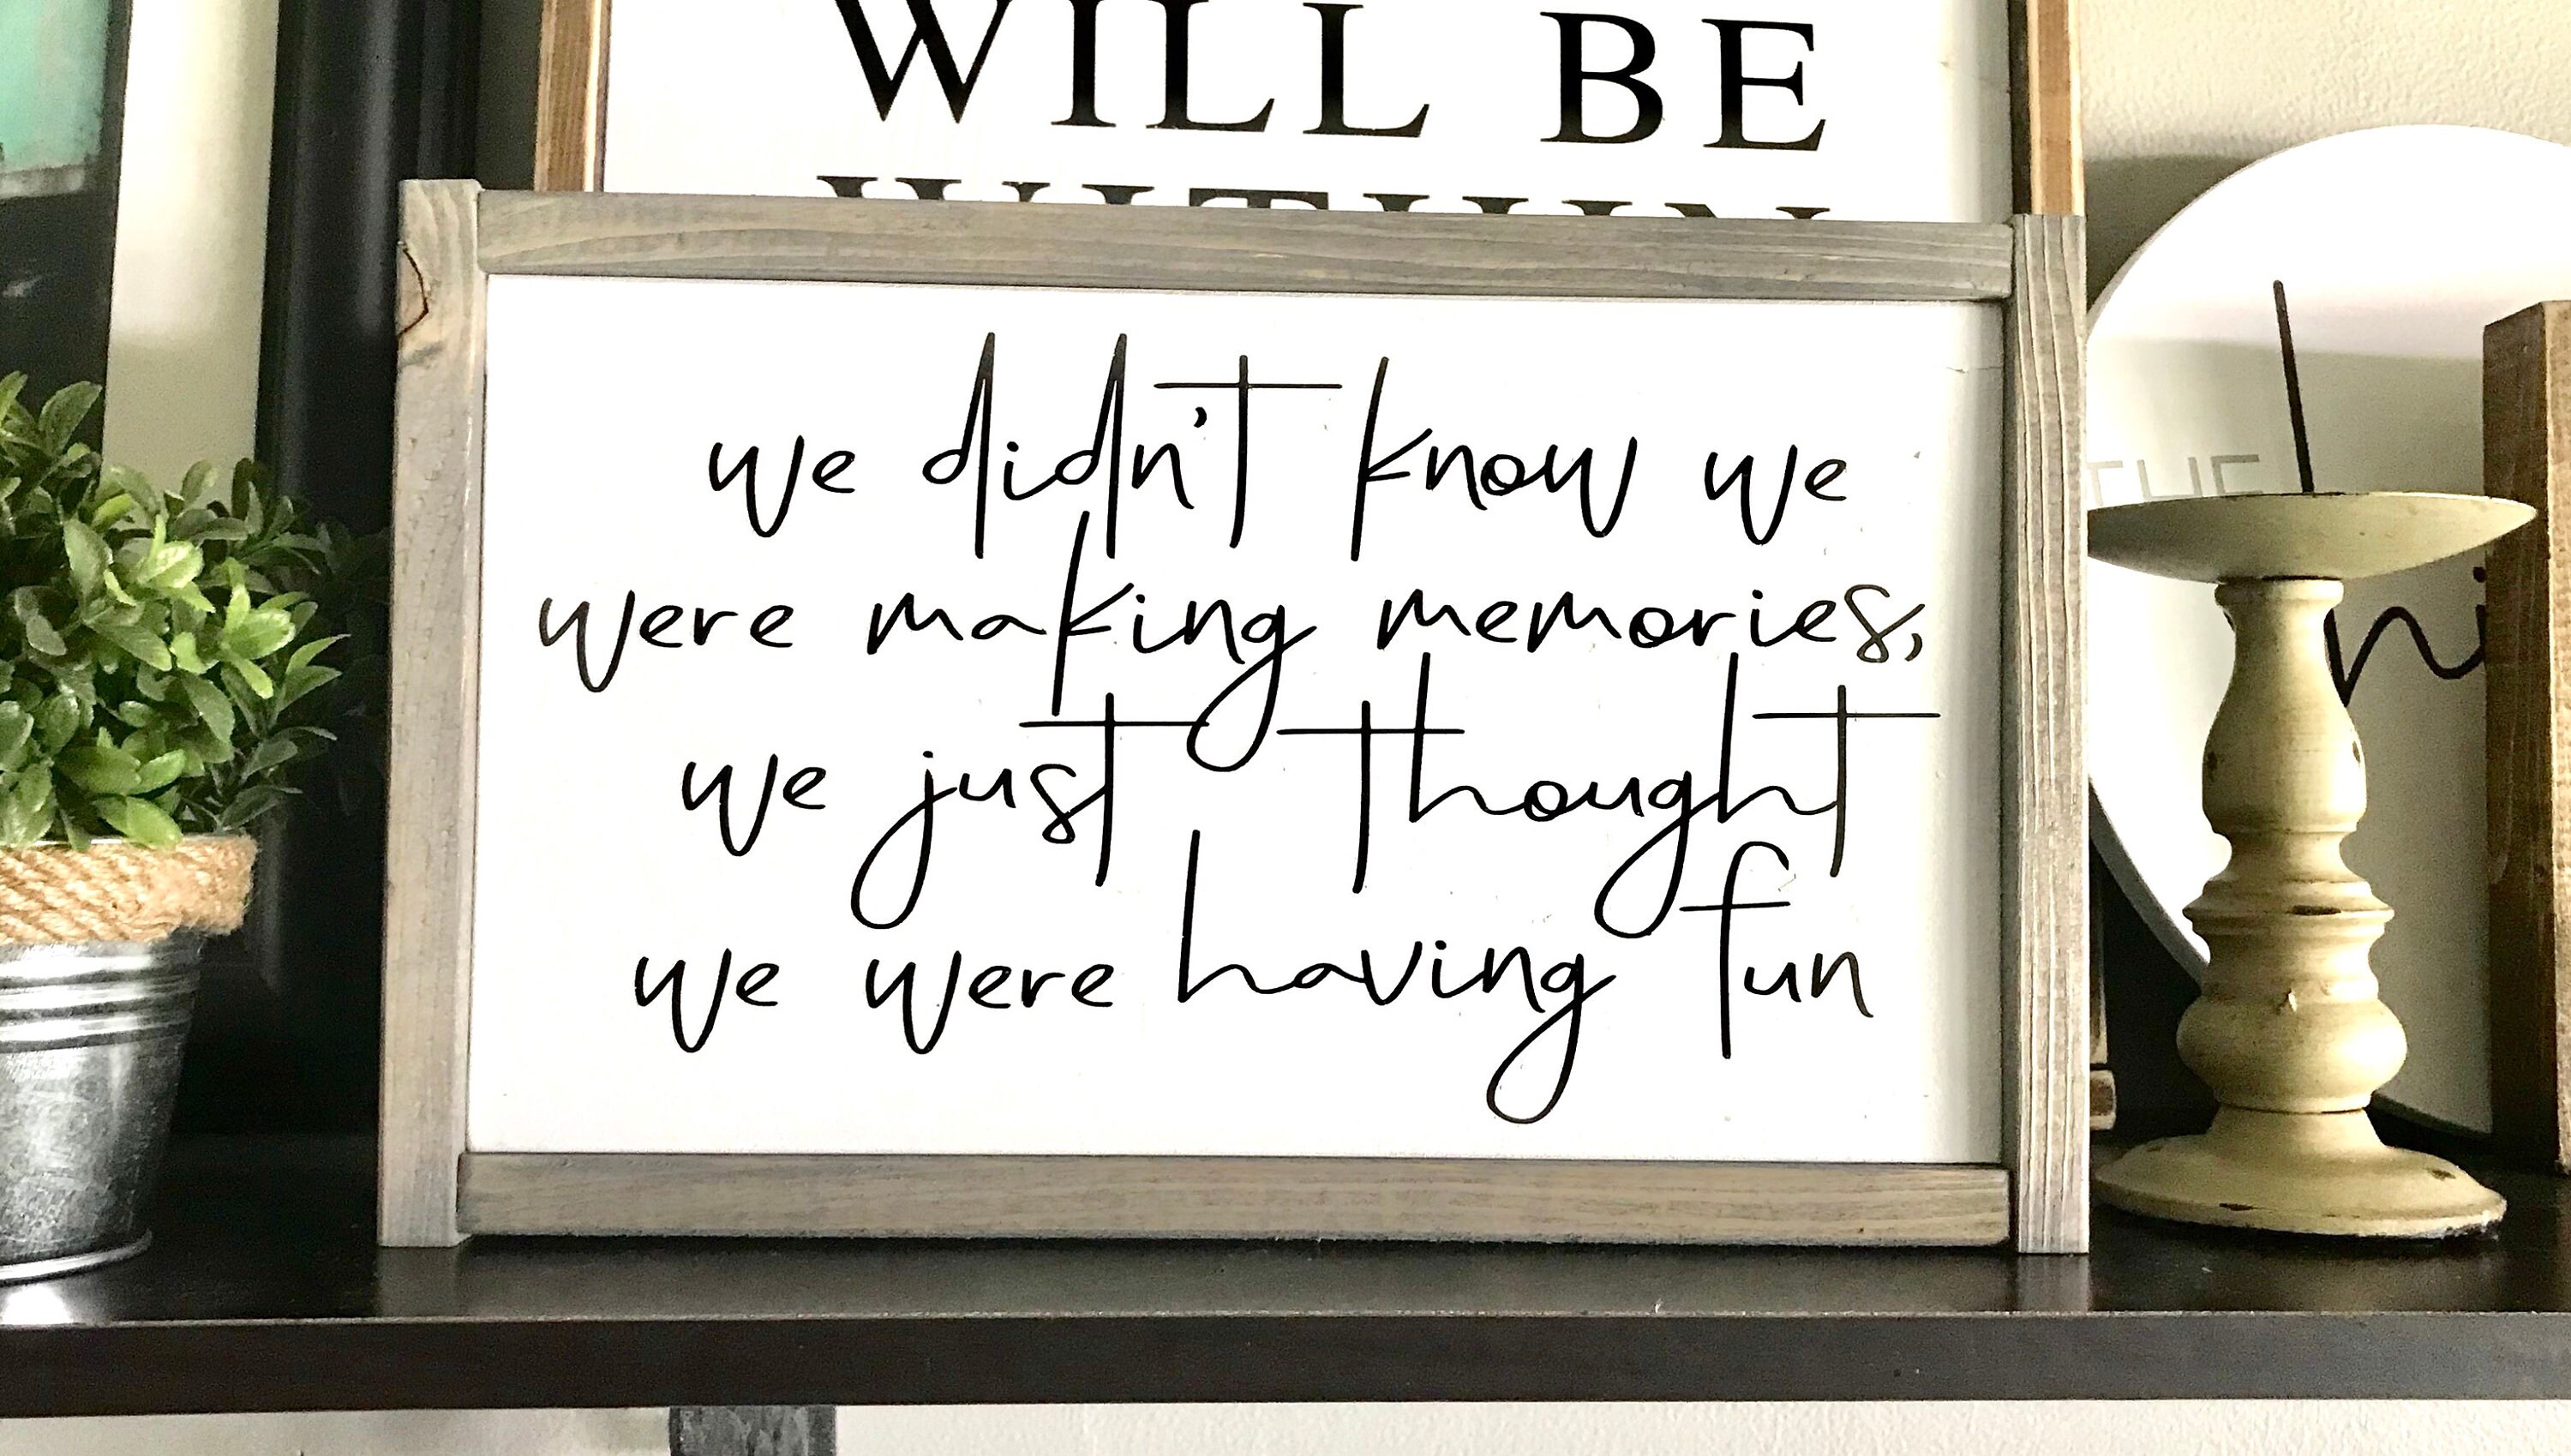 WILL BE
WITHIN
we didn't know we
were making memories,
we just thought
we were having fun
THE